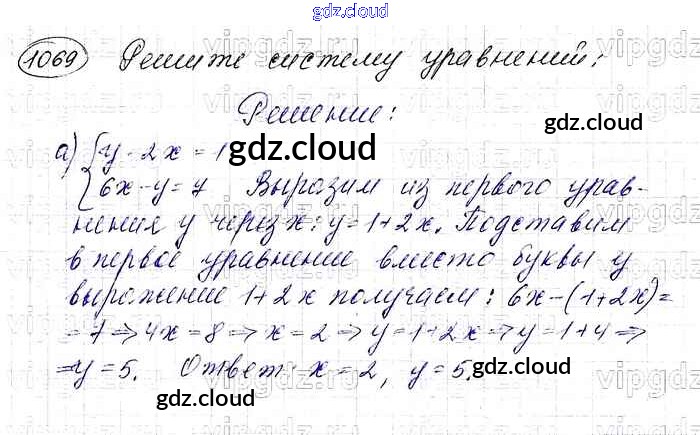 gdz.cloud
1069 Решите систему уравнений:
Решение:
gdz.cloud
а) { y - 2x = 1
gdz.cloud
6x - y = 7 Выразим из первого урав-
нения y через x: y = 1 + 2x. Подставим
в первое уравнение вместо буквы y
выражение 1 + 2x получаем: 6x - (1 + 2x) =
= 7 ⇒ 4x = 8 ⇒ x = 2 ⇒ y = 1 + 2x ⇒ y = 1 + 4 ⇒
gdz.cloud
⇒ y = 5. Ответ: x = 2, y = 5.
gdz.cloud
gdz.cloud